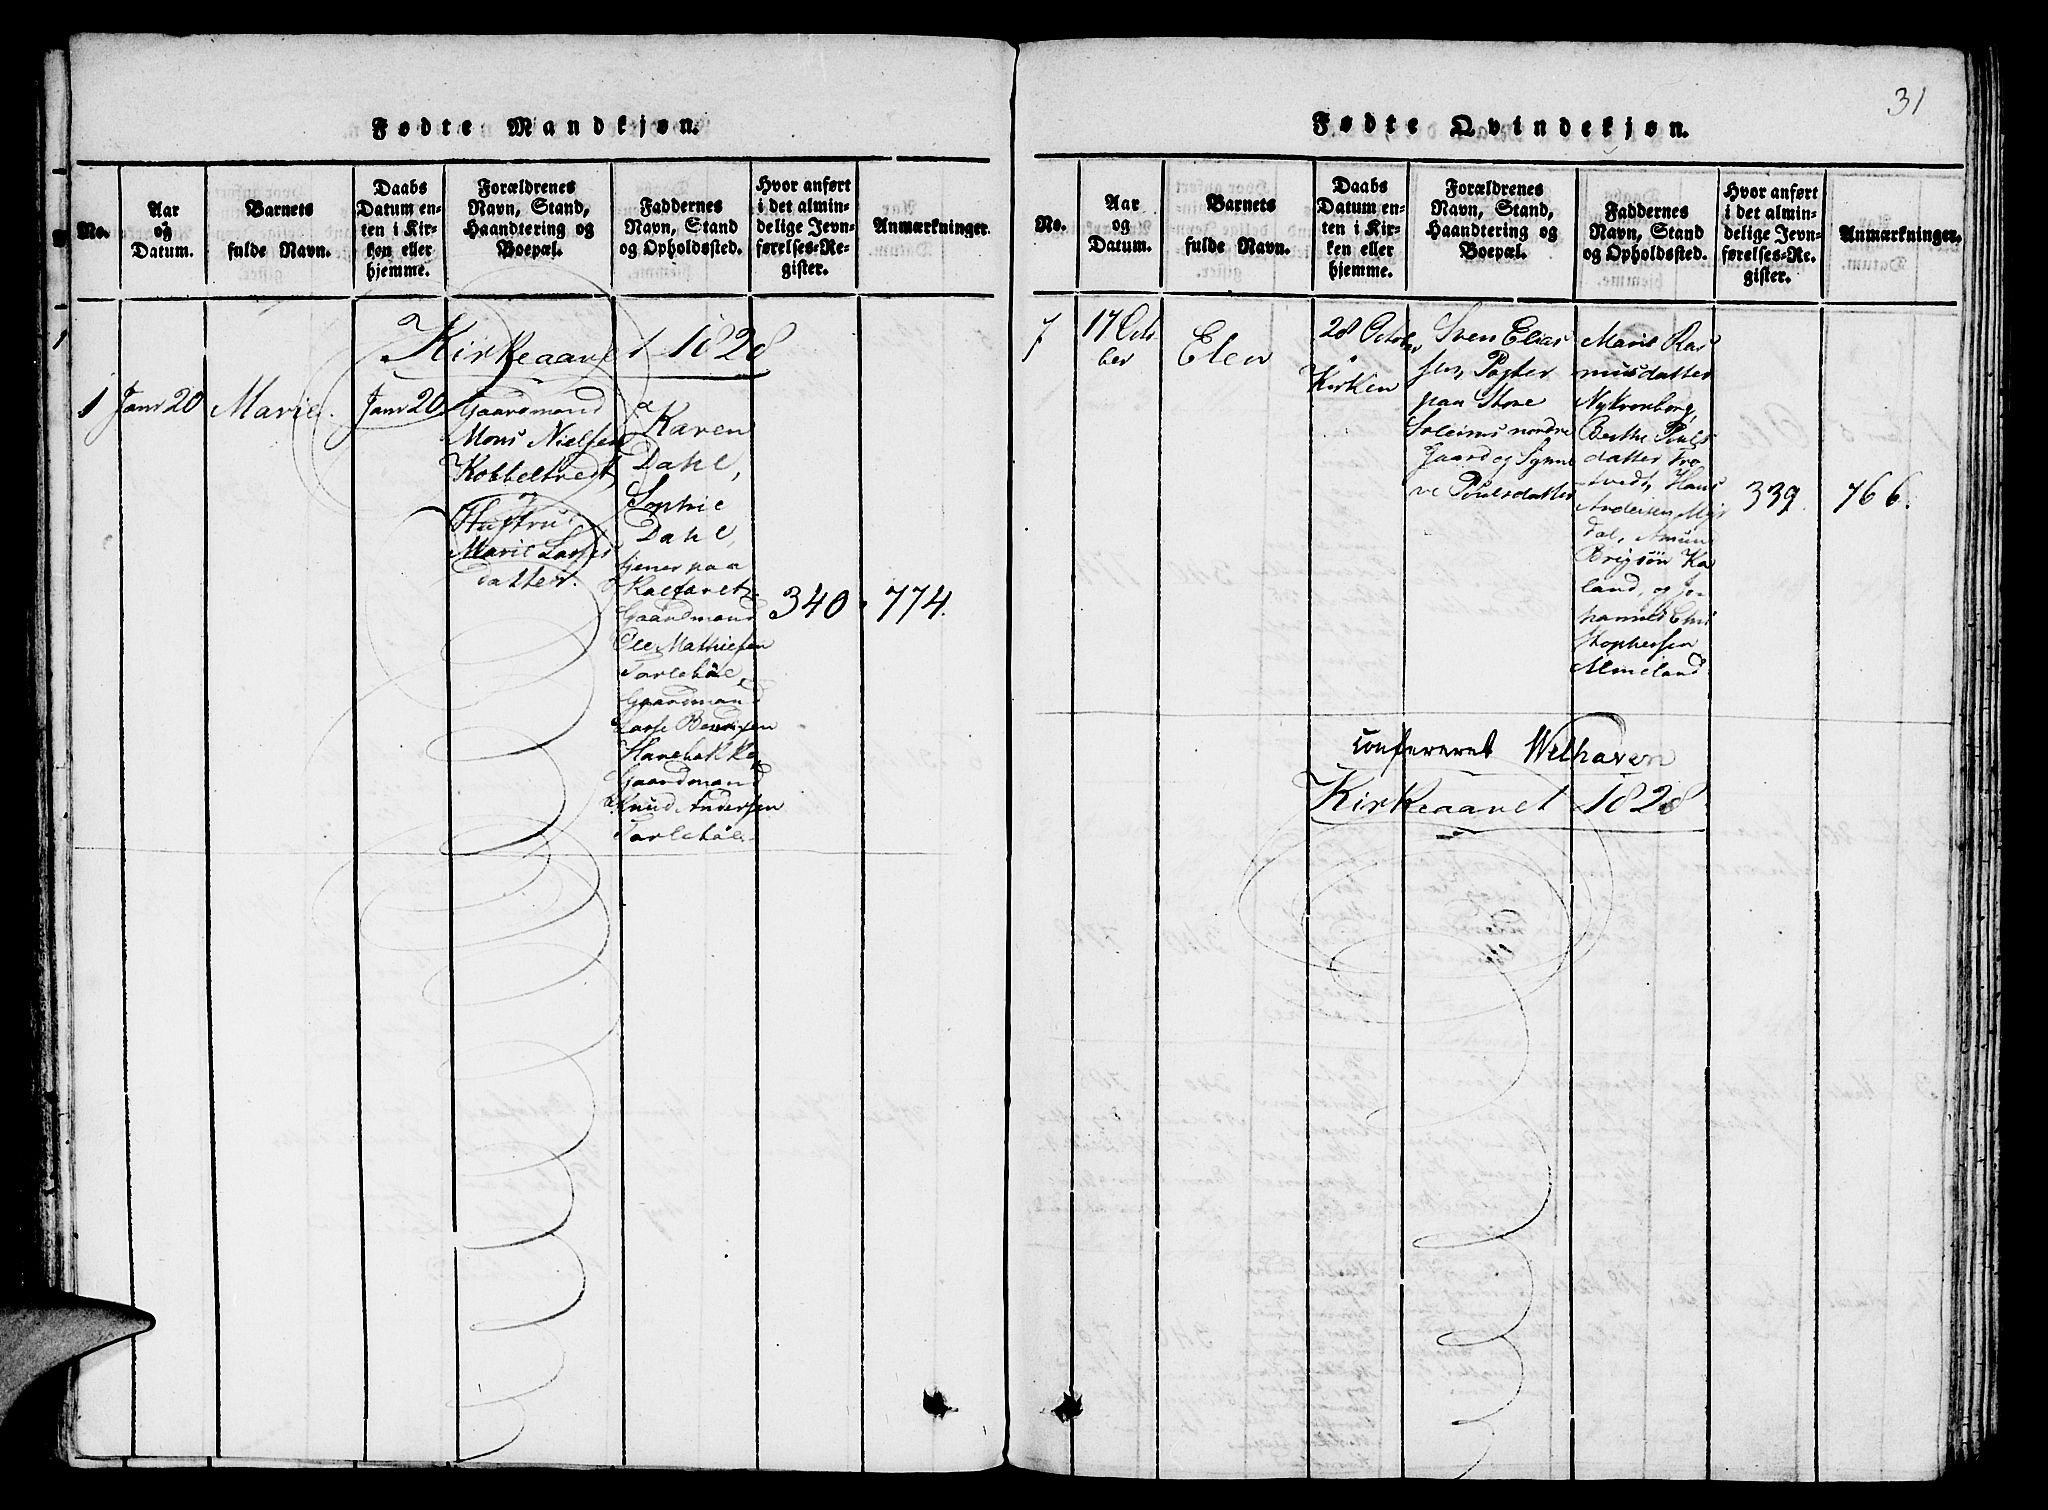 31
Fødte Mandkjøn.
No.
Aar
og
Datum.
Barnets
fulde Navn.
Daabs
Datum en-
ten i Kir-
ken eller
hjemme.
Forældrenes
Navn, Stand,
Haandtering og
Boepæl.
Faddernes
Navn, Stand
og Opholdssted.
Hvor anført
i det almin-
delige Jevn-
førelses-Re-
gister.
Anmærkninger.
Kirkeaaret 1828
1
Janr 20
Marie.
Janr 20
Gaardmand
Mons Nielsen
Kobbeltvedt,
og
Hustru
Marie Larses
datter.
Karen
Dahl,
Sophie
Dahl,
tjener paa
Kalfaret
Gaardmand
Ole Mathiesen
Tarlebøe,
Gaardmand
Larse
Harebakke,
Gaardmand
Knud Andersen
Tarlebøe
340
774.
Fødte Qvindekjøn.
No.
Aar
og
Datum.
Barnets
fulde Navn.
Daabs
Datum en-
ten i Kir-
ken eller
hjemme.
Forældrenes
Navn, Stand,
Haandtering og
Boepæl.
Faddernes
Navn, Stand
og Opholdssted.
Hvor anført
i det almin-
delige Jevn-
førelses-Re-
gister.
Anmærkninger.
7
17 Octo
ber
Elen
28 October
Kirken
Sven Elias
sen, Pagter
paa Store
Soleims nordre
Gaard og Synne
ve Poulsdatter
Marie Ras
musdatter
Nykronborg,
Berthe Pouls
datter Tve
tvedt, Hans
Andersen Myr
dal, Amun
Brigsøn Ka
land, og Jo
hannes Chri
stophersen
Almeland
339
766.
Confereret Welhaven
Kirkeaaret 1828